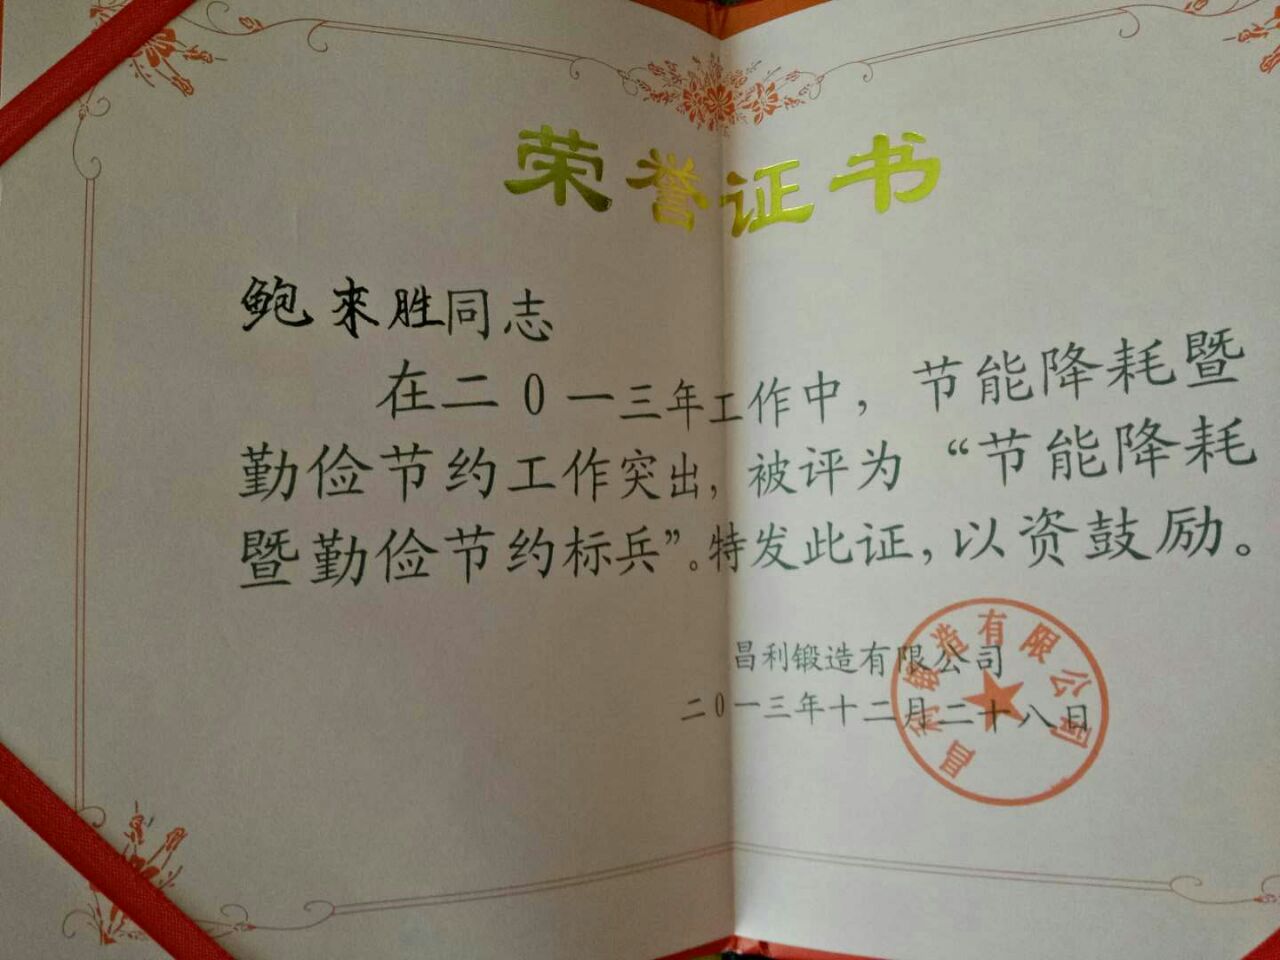 荣誉证书
鲍来胜同志
在二0一三年工作中，节能降耗暨
勤俭节约工作突出，被评为“节能降耗
暨勤俭节约标兵”。特发此证，以资鼓励。
昌利锻造有限公司
二0一三年十二月二十八日
昌利锻造有限公司